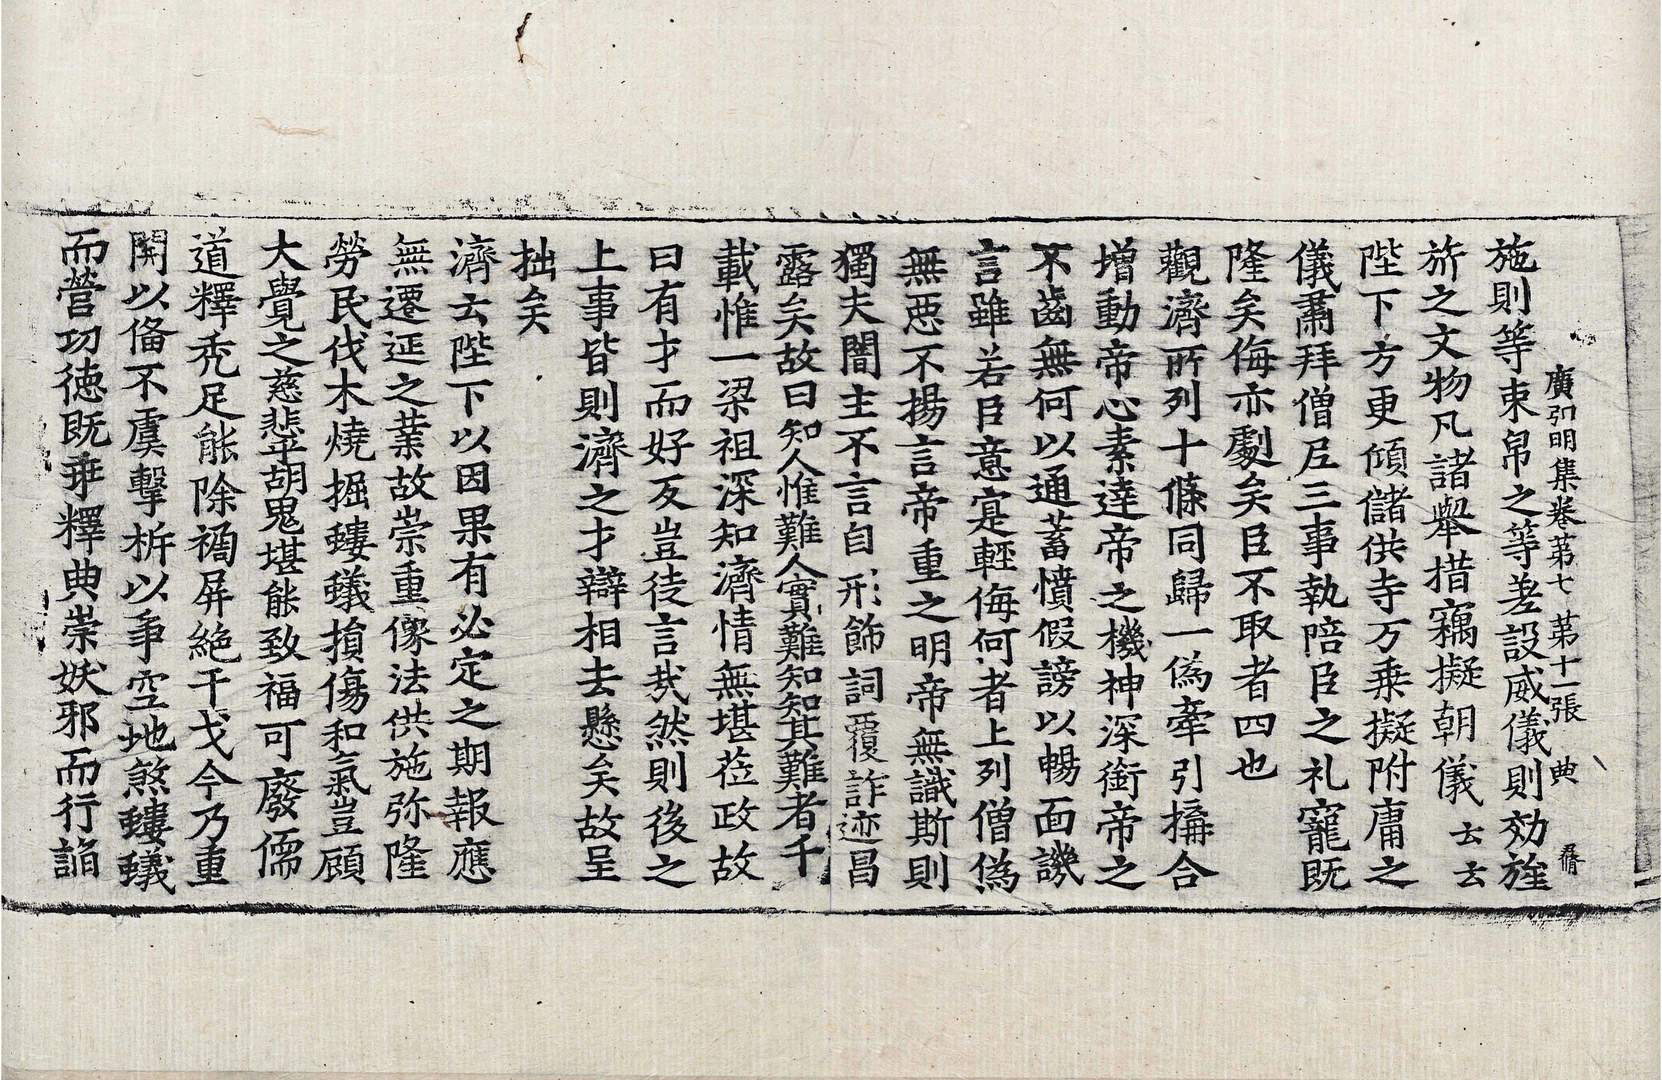 廣弘明集卷第七 第十一張 典
施則等束帛之等差設威儀則効旌
旂之文物凡諸舉措竊擬朝儀云云
陛下方更傾儲供寺万乗擬附庸之
儀肅拜僧尼三事執陪臣之礼寵既
隆矣侮亦劇矣臣不取者四也
觀濟所列十條同歸一偽牽引搧合
增動帝心素達帝之機神深銜帝之
不齒無何以通蓄憤假謗以暢面譏
言雖若臣意寔輕侮何者上列僧偽
無惡不揚言帝重之明帝無識斯則
獨夫闇主不言自形飾詞覆詐迹昌
露矣故曰知人惟難人實難知知其難者千
載惟一梁祖深知濟情無堪莅政故
曰有才而好反豈徒言㢤然則後之
上事皆則濟之才辯相去懸矣故呈
拙矣
濟云陛下以因果有必定之期報應
無遷延之業故崇重像法供施弥隆
勞民伐木燒掘螻蟻損傷和氣豈顧
大覺之慈悲胡鬼堪能致福可廢儒
道釋禿足能除禍屏絶干戈今乃重
開以備不虞擊柝以爭空地煞螻蟻
而營功徳既乖釋典崇妖邪而行諂